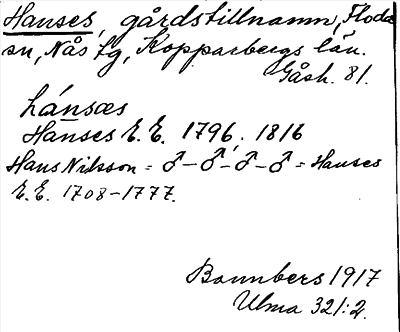 Hanses, gårdstillnamn, Floda
sn, Nås tg, Kopparbergs län.
Gåsh. 81.
hánsæs
Hanses E. E. 1796. 1816
Hans Nilsson = ♂ – ♂ – ♂ – ♂ = Hanses
E. E. 1708–1777.
Bannbers 1917
Ulma 321:2.